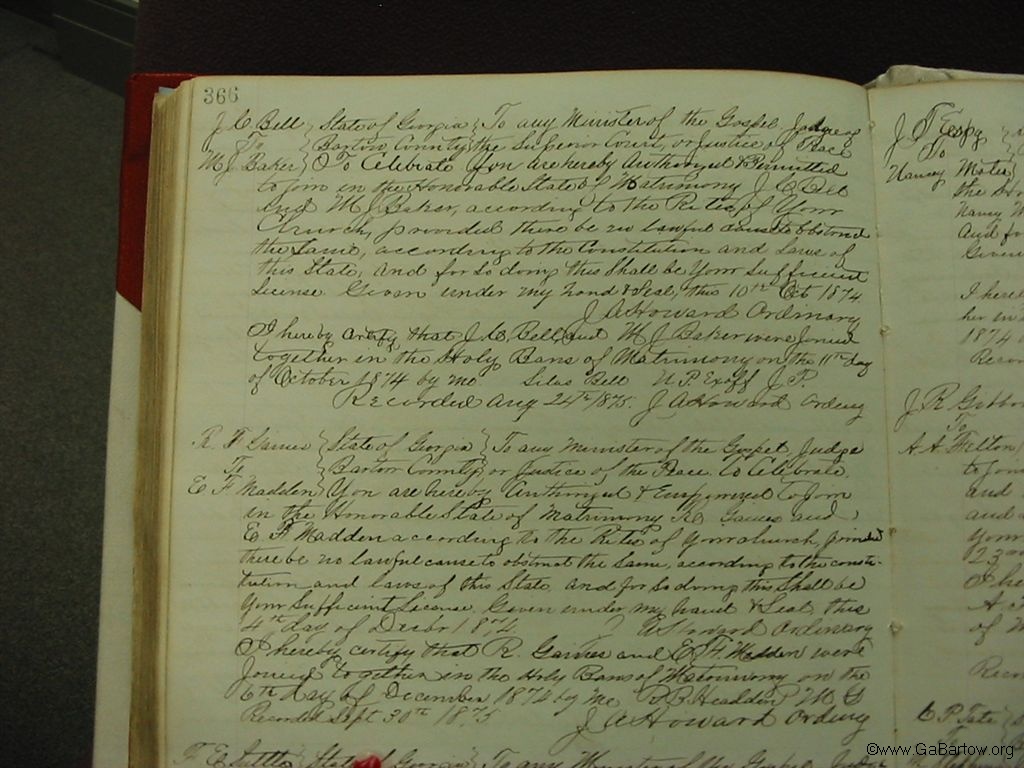 366
J C Bell } State of Georgia } To any Minister of the Gospel, Judge of
To } Bartow County } the Superior Court, or Justice of Peace
M J Baker } To Celebrate You are hereby Authorized & Permitted
to join in the Honorable State of Matrimony J C Bell
And M J Baker, according to the Rites of Your
Church, provided there be no lawful cause to obstruct
the Same, according to the Constitution and Laws of
this State, and for so doing this Shall be Your Sufficient
License. Given under my hand & Seal, this 10th Oct 1874
J A Howard Ordinary
I hereby Certify that J. C. Bell, and M J Baker were Joined
together in the Holy Bans of Matrimony on the 11th day
of October 1874 by me Silas Bell N. P. Exoff J. P.
Recorded Aug 24th 1875. J A Howard Ordiny
R. F Gaines } State of Georgia } To any Minister of the Gospel, Judge
To } Bartow County } or Justice of the Peace to Celebrate.
E F Madden } You are hereby Authorized & Empowered to join
in the Honorable State of Matrimony R Gaines and
E F Madden according to the Rites of Your church, provided
there be no lawful cause to obstruct the Same, according to the consti-
tution and laws of this State, and for so doing this Shall be
Your Sufficient License, Given under my hand & Seal this
4th day of Decbr 1874 J A Howard Ordinary
I hereby certify that R. Gaines and E F Madden were
Joined together in the Holy Bans of Matrimony on the
6th day of December 1874 by me P. B. Headden M G
Recorded Sept 30th 1875
J A Howard Ordiny
State of Georgia } To any Minister of the Gospel, Jud
J T
To
Nancy
the
Nancy
And fo
Given
I here
her in
1874
Recor
J R
To
A A Felton
to join
and
and
Your
23
I he
A
of M
Reco
C P Tate
©www.GaBartow.org